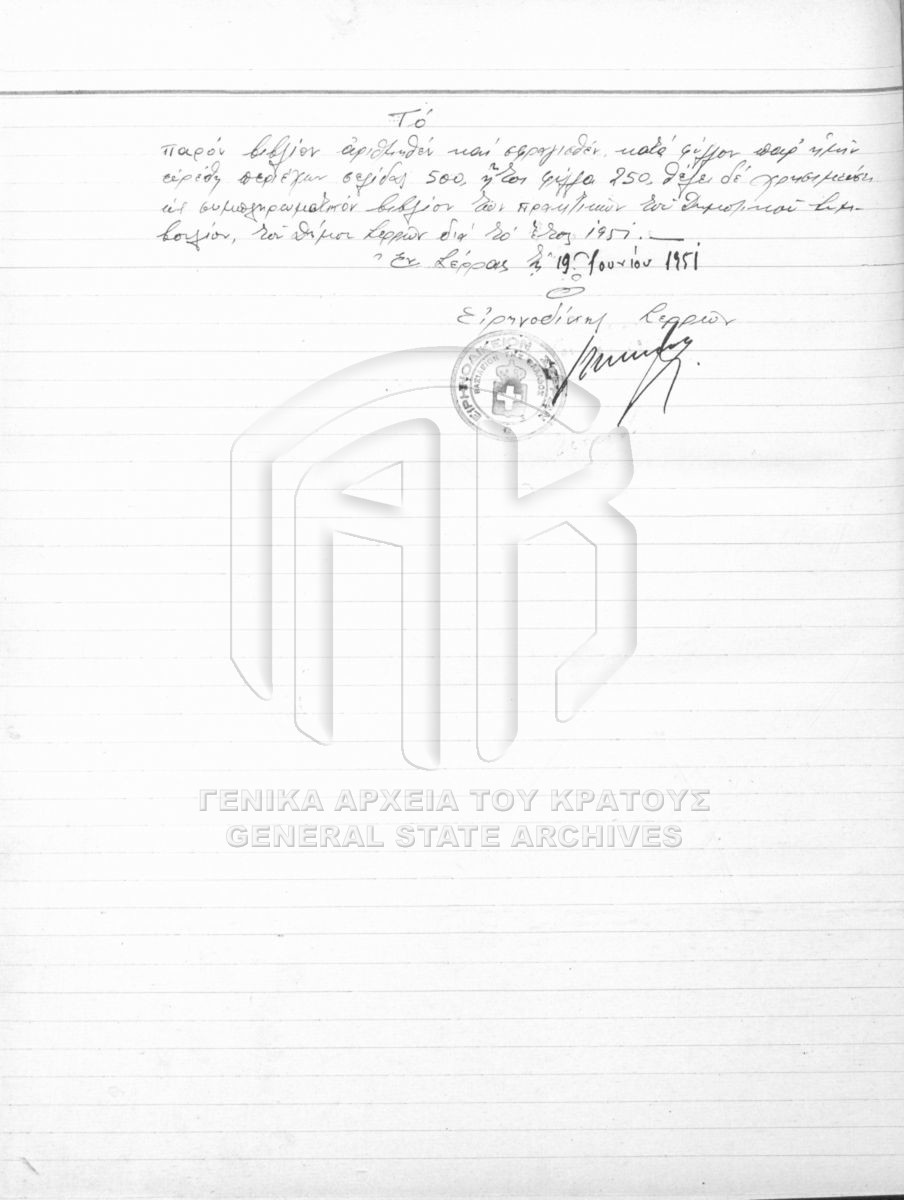 Τό
παρόν βιβλίον ἀριθμηθέν καί σφραγισθέν, κατά φύλλον παρ' ἡμῶν
εὑρέθη περιέχων σελίδας 500, ἤτοι φύλλα 250, θέλει δέ χρησιμεύσῃ
ὡς συμπληρωματικόν βιβλίον τῶν πρακτικῶν τοῦ Δημοτικοῦ Συμ-
βουλίου, τοῦ Δήμου Σερρῶν διά τό ἔτος 1951.
Ἐν Σέρραις τῇ 19 Ἰουνίου 1951
Ὁ
Εἰρηνοδίκης Σερρῶν
ΕΙΡΗΝΟΔΙΚΕΙΟΝ
ΒΑΣΙΛΕΙΟΝ ΤΗΣ ΕΛΛΑΔΟΣ
ΓΕΝΙΚΑ ΑΡΧΕΙΑ ΤΟΥ ΚΡΑΤΟΥΣ
GENERAL STATE ARCHIVES